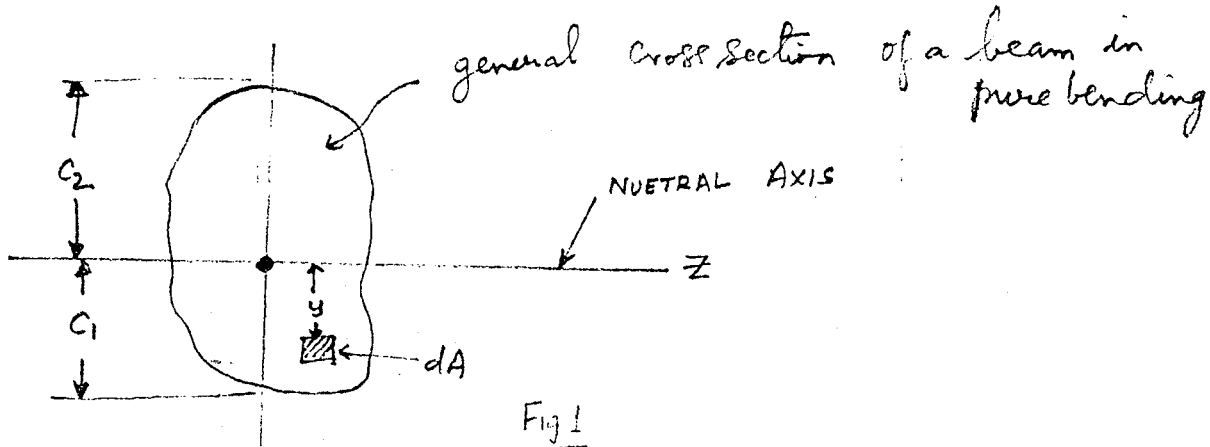 general cross section of a beam in
pure bending
C2
NUETRAL AXIS
Z
C1
y
dA
Fig 1